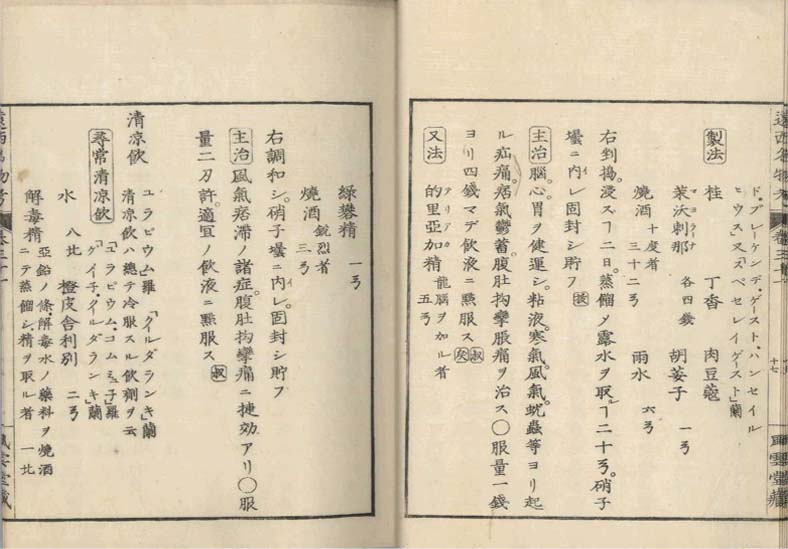 遠西名物考
卷三十一
十七
風雲堂藏
ド、プレーケンデ、ゲースト、ハンセイル
ヒウス」又「スペセレイゲースト」蘭
製法
桂 丁香 肉豆蔻
茉沃刺那 マヨラナ 各四錢 胡荽子 一ヲ
燒酒 十度者 三十二ヲ 雨水 六ヲ
右剉擣、浸スヿ二日。蒸餾メ露水ヲ取ルヿ二十ヲ。硝子
壜ニ内レ固封シ貯フ 扱
主治 腦。心。胃ヲ健運シ。粘液。寒氣。風氣。蚘蟲等ヨリ起
ル疝痛。痞氣鬱蓄。腹肚拘攣脹痛ヲ治ス〇服量一錢
ヨリ四錢マデ飲液ニ點服ス
又法
的里亞加精 テリアカ 龍腦ヲ加ル者 五ヲ
綠礬精 一ヲ
燒酒 銳烈者 三ヲ
右調和シ。硝子壜ニ内レ。固封シ貯フ
主治 風氣痞滯ノ諸症。腹肚拘攣痛ニ捷効アリ〇服
量二刃許。適宜ノ飲液ニ點服ス
清凉飲
ユラピウム」羅 「クイルダランキ」蘭
清凉飲ハ總テ冷服スル飲劑ヲ云
尋常清凉飲 「ユラピウム、コムミュ子」羅
「ゲメイ子クイルダランキ」蘭
水 八比 橙皮舎利別 二ヲ
解毒精 亞鉛ノ條解毒水ノ藥料ヲ燒酒
ニテ蒸餾シ精ヲ取ル者 一比
遠西名物考
卷三十一
風雲堂藏